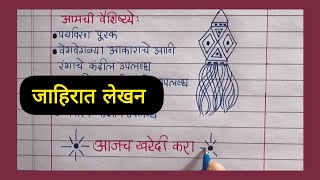 आमची वैशिष्ट्ये:
पर्यावरण पूरक
वेगवेगळ्या आकाराचे आणि
रंगाचे कंदील उपलब्ध
जाहिरात लेखन
आजच खरेदी करा